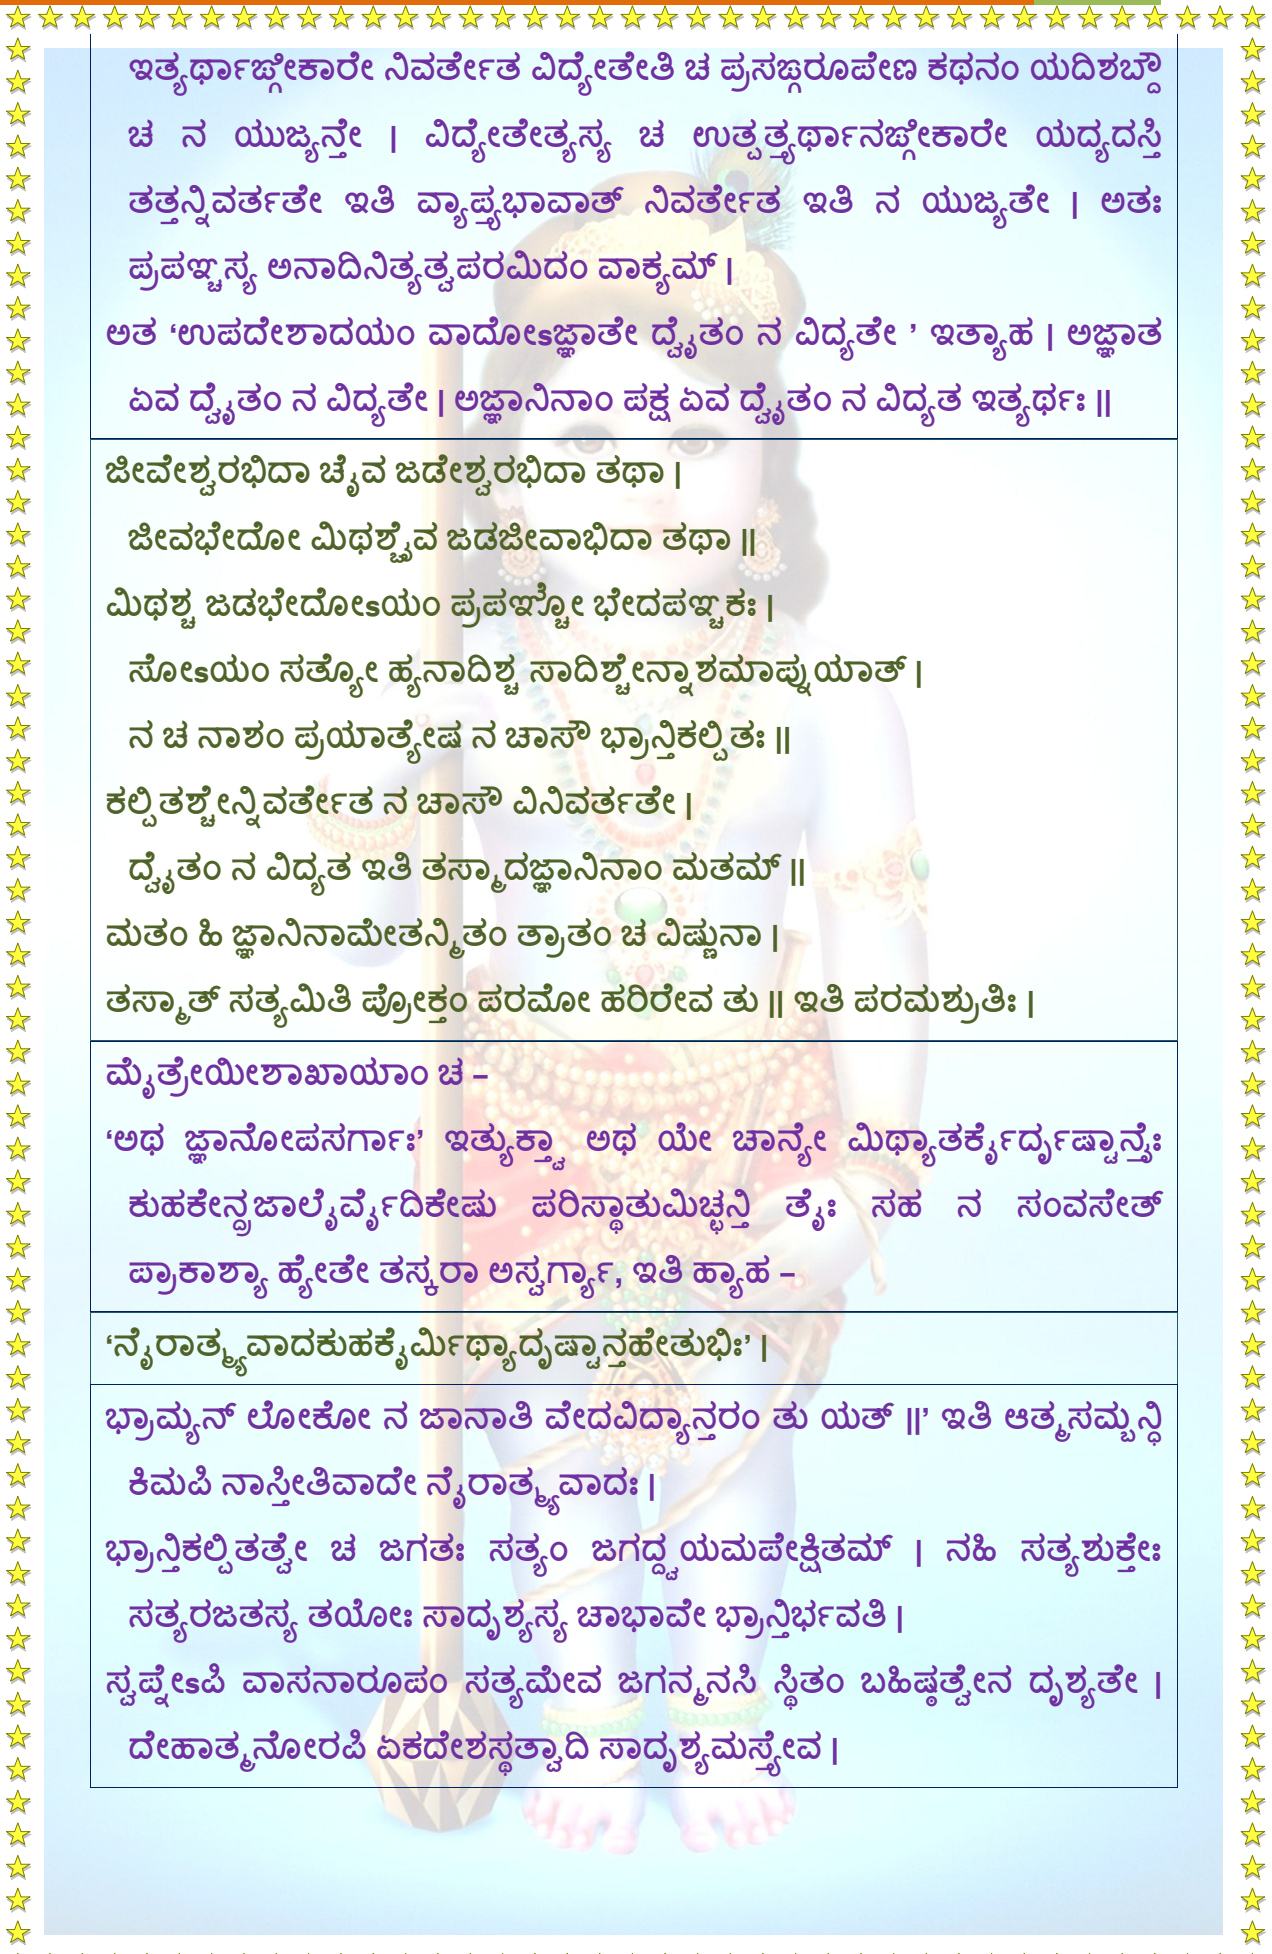 ಇತ್ಯರ್ಥಾಙ್ಗೀಕಾರೇ ನಿವರ್ತೇತ ವಿದ್ಯೇತೇತಿ ಚ ಪ್ರಸಙ್ಗರೂಪೇಣ ಕಥನಂ ಯದಿಶಬ್ದೌ
ಚ ನ ಯುಜ್ಯನ್ತೇ | ವಿದ್ಯೇತೇತ್ಯಸ್ಯ ಚ ಉತ್ಪತ್ತ್ಯರ್ಥಾನಙ್ಗೀಕಾರೇ ಯದ್ಯದಸ್ತಿ
ತತ್ತನ್ನಿವರ್ತತೇ ಇತಿ ವ್ಯಾಪ್ತ್ಯಭಾವಾತ್ ನಿವರ್ತೇತ ಇತಿ ನ ಯುಜ್ಯತೇ | ಅತಃ
ಪ್ರಪಞ್ಚಸ್ಯ ಅನಾದಿನಿತ್ಯತ್ವಪರಮಿದಂ ವಾಕ್ಯಮ್ |
ಅತ ‘ಉಪದೇಶಾದಯಂ ವಾದೋsಜ್ಞಾತೇ ದ್ವೈತಂ ನ ವಿದ್ಯತೇ ’ ಇತ್ಯಾಹ | ಅಜ್ಞಾತ
ಏವ ದ್ವೈತಂ ನ ವಿದ್ಯತೇ | ಅಜ್ಞಾನಿನಾಂ ಪಕ್ಷ ಏವ ದ್ವೈತಂ ನ ವಿದ್ಯತ ಇತ್ಯರ್ಥಃ ||
ಜೀವೇಶ್ವರಭಿದಾ ಚೈವ ಜಡೇಶ್ವರಭಿದಾ ತಥಾ |
ಜೀವಭೇದೋ ಮಿಥಶ್ಚೈವ ಜಡಜೀವಾಭಿದಾ ತಥಾ ||
ಮಿಥಶ್ಚ ಜಡಭೇದೋsಯಂ ಪ್ರಪಞ್ಚೋ ಭೇದಪಞ್ಚಕಃ |
ಸೋsಯಂ ಸತ್ಯೋ ಹ್ಯನಾದಿಶ್ಚ ಸಾದಿಶ್ಚೇನ್ನಾಶಮಾಪ್ನುಯಾತ್ |
ನ ಚ ನಾಶಂ ಪ್ರಯಾತ್ಯೇಷ ನ ಚಾಸೌ ಭ್ರಾನ್ತಿಕಲ್ಪಿತಃ ||
ಕಲ್ಪಿತಶ್ಚೇನ್ನಿವರ್ತೇತ ನ ಚಾಸೌ ವಿನಿವರ್ತತೇ |
ದ್ವೈತಂ ನ ವಿದ್ಯತ ಇತಿ ತಸ್ಮಾದಜ್ಞಾನಿನಾಂ ಮತಮ್ ||
ಮತಂ ಹಿ ಜ್ಞಾನಿನಾಮೇತನ್ಮಿತಂ ತ್ರಾತಂ ಚ ವಿಷ್ಣುನಾ |
ತಸ್ಮಾತ್ ಸತ್ಯಮಿತಿ ಪ್ರೋಕ್ತಂ ಪರಮೋ ಹರಿರೇವ ತು || ಇತಿ ಪರಮಶ್ರುತಿಃ |
ಮೈತ್ರೇಯೀಶಾಖಾಯಾಂ ಚ –
‘ಅಥ ಜ್ಞಾನೋಪಸರ್ಗಾಃ’ ಇತ್ಯುಕ್ತ್ವಾ ಅಥ ಯೇ ಚಾನ್ಯೇ ಮಿಥ್ಯಾತರ್ಕೈರ್ದೃಷ್ಟಾನ್ತೈಃ
ಕುಹಕೇನ್ದ್ರಜಾಲೈರ್ವೈದಿಕೇಷು ಪರಿಸ್ಥಾತುಮಿಚ್ಛನ್ತಿ ತೈಃ ಸಹ ನ ಸಂವಸೇತ್
ಪ್ರಾಕಾಶ್ಯಾ ಹ್ಯೇತೇ ತಸ್ಕರಾ ಅಸ್ವರ್ಗ್ಯಾ, ಇತಿ ಹ್ಯಾಹ –
‘ನೈರಾತ್ಮ್ಯವಾದಕುಹಕೈರ್ಮಿಥ್ಯಾದೃಷ್ಟಾನ್ತಹೇತುಭಿಃ’ |
ಭ್ರಾಮ್ಯನ್ ಲೋಕೋ ನ ಜಾನಾತಿ ವೇದವಿದ್ಯಾನ್ತರಂ ತು ಯತ್ ||’ ಇತಿ ಆತ್ಮಸಮ್ಬನ್ಧಿ
ಕಿಮಪಿ ನಾಸ್ತೀತಿವಾದೇ ನೈರಾತ್ಮ್ಯವಾದಃ |
ಭ್ರಾನ್ತಿಕಲ್ಪಿತತ್ವೇ ಚ ಜಗತಃ ಸತ್ಯಂ ಜಗದ್ದ್ವಯಮಪೇಕ್ಷಿತಮ್ | ನಹಿ ಸತ್ಯಶುಕ್ತೇಃ
ಸತ್ಯರಜತಸ್ಯ ತಯೋಃ ಸಾದೃಶ್ಯಸ್ಯ ಚಾಭಾವೇ ಭ್ರಾನ್ತಿರ್ಭವತಿ |
ಸ್ವಪ್ನೇsಪಿ ವಾಸನಾರೂಪಂ ಸತ್ಯಮೇವ ಜಗನ್ಮನಸಿ ಸ್ಥಿತಂ ಬಹಿಷ್ಠತ್ವೇನ ದೃಶ್ಯತೇ |
ದೇಹಾತ್ಮನೋರಪಿ ಏಕದೇಶಸ್ಥತ್ವಾದಿ ಸಾದೃಶ್ಯಮಸ್ತ್ಯೇವ |